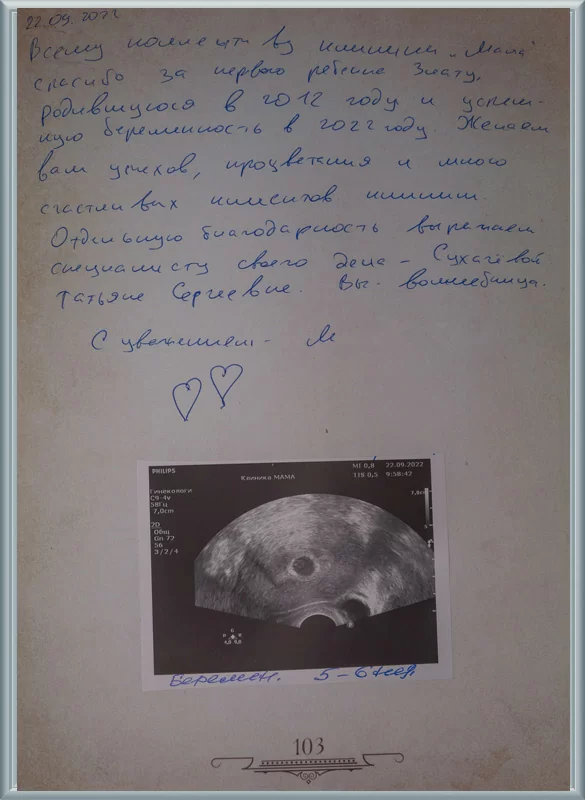 22.09.2022
Всему коллективу клиники „Мама"
спасибо за первого ребенка Злату,
родившуюся в 2012 году и успеш-
ную беременность в 2022 году. Желаем
вам успехов, процветания и много
счастливых клиентов клиники
Отдельную благодарность выражаем
специалисту своего дела - Сухачёвой
Татьяне Сергеевне. Вы - волшебница.
С уважением - М
PHILIPS
Клиника МАМА
MI 0,8 22.09.2022
TIS 0,5 9:58:42
Гинекологи
C9-4v
58Гц
7,0cm
2D
Общ
Gn 72
56
3/2/4
7,0cm
5
G
P R
4,0 9,0
Беремен. 5-6 нед.
103